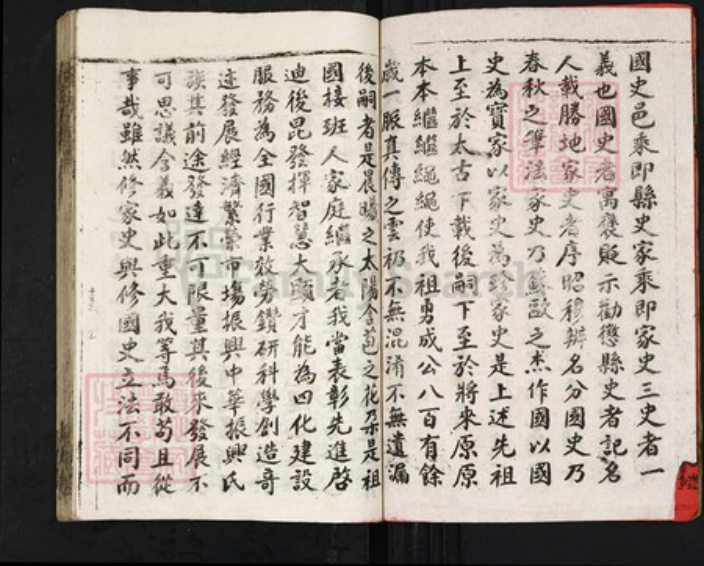 國史邑乘即縣史家乘即家史三史者一
義也國史者寓褒貶示勸懲縣史者記名
人載勝地家史者序昭穆辨名分國史乃
春秋之筆法家史乃蘇歐之杰作國以國
史為寶家以家史為珍家史是上述先祖
上至於太古下載後嗣下至於將來原原
本本繼繼繩繩使我祖勇成公八百有餘
歲一脈真傳之雲礽不無混淆不無遺漏
後嗣者是晨曦之太陽含苞之花朵是祖
國接班人家庭繼承者我當表彰先進啓
迪後昆發揮智慧大顯才能為四化建設
服務為全國行業效勞鑽研科學創造奇
迹發展經濟繁榮市場振興中華振興氏
族其前途發達不可限量其後來發展不
可思議含義如此重大我等焉敢苟且從
事哉雖然修家史與修國史立法不同而